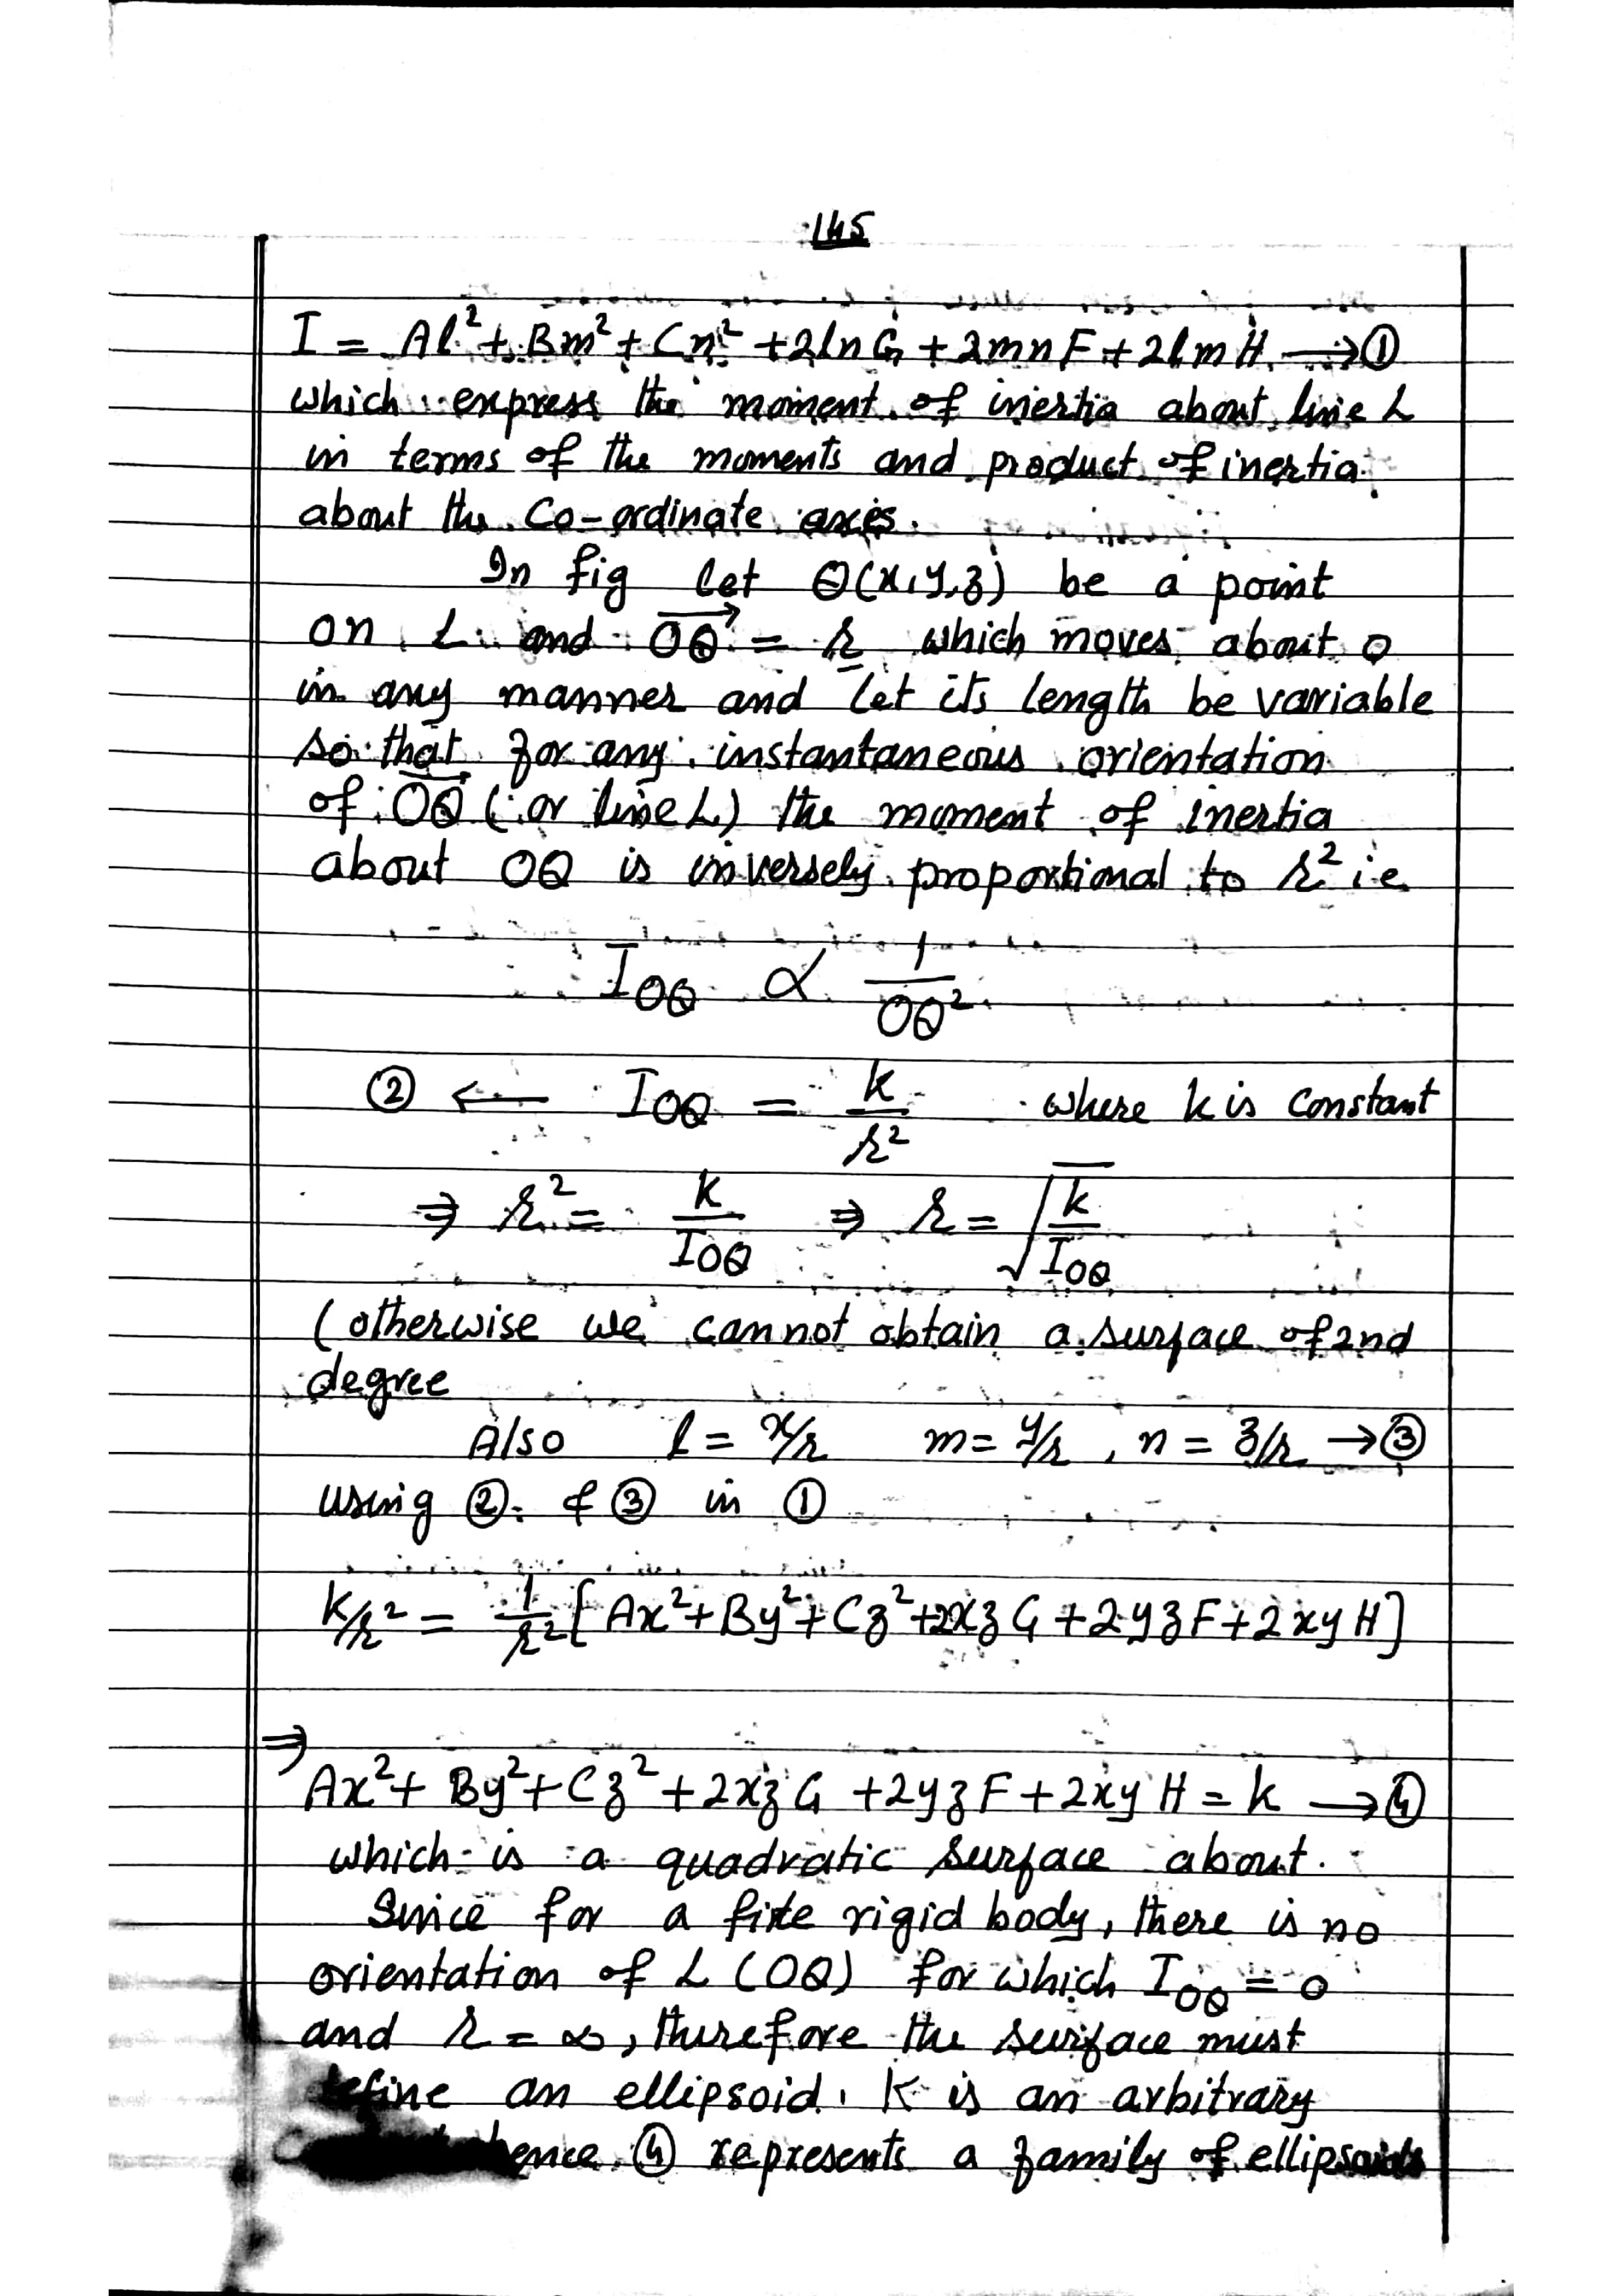 145
I = Al² + Bm² + Cn² + 2lnG + 2mnF + 2lmH → ①
which express the moment of inertia about line L
in terms of the moments and product of inertia
about the Co-ordinate axis.
In fig let Q(x,y,z) be a point
on L and OQ⃗ = r which moves about O
in any manner and let its length be variable
so that for any instantaneous orientation
of OQ⃗ (or line L) the moment of inertia
about OQ is inversely proportional to r² i.e
I_OQ ∝ 1/OQ²
② ← I_OQ = k/r² where k is constant
⇒ r² = k/I_OQ ⇒ r = √(k/I_OQ)
(otherwise we cannot obtain a surface of 2nd
degree
Also l = x/r m = y/r , n = z/r → ③
using ② & ③ in ①
k/r² = 1/r² [Ax² + By² + Cz² + 2xzG + 2yzF + 2xyH]
⇒
Ax² + By² + Cz² + 2xzG + 2yzF + 2xyH = k → ④
which is a quadratic surface about.
Since for a fixte rigid body, there is no
orientation of L (OQ) for which I_OQ = 0
and r = ∞, therefore the surface must
define an ellipsoid. K is an arbitrary
hence ④ represents a family of ellipsoids